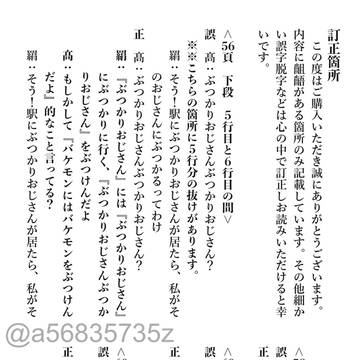 訂正箇所
この度はご購入いただき誠にありがとうございます。
内容に齟齬がある箇所のみ記載しています。その他細か
い誤字脱字などは心の中で訂正しお読みいただけると幸
いです。
<56頁 下段 5行目と6行目の間>
誤 高:ぶつかりおじさんぶつかりおじさん?
※※こちらの箇所に5行分の抜けがあります。
絹:そう!駅にぶつかりおじさんが居たら、私がそ
のおじさんにぶつかるってわけ
正 高:ぶつかりおじさんぶつかりおじさん?
絹:『ぶつかりおじさん』には『ぶつかりおじさん』
にぶつかりに行く、『ぶつかりおじさんぶつか
りおじさん』をぶつけんだよ
高:もしかして『バケモンにはバケモンをぶつけん
だよ』的なこと言ってる?
絹:そう!駅にぶつかりおじさんが居たら、私がそ
正 誤 <
正 誤 <
@a56835735z